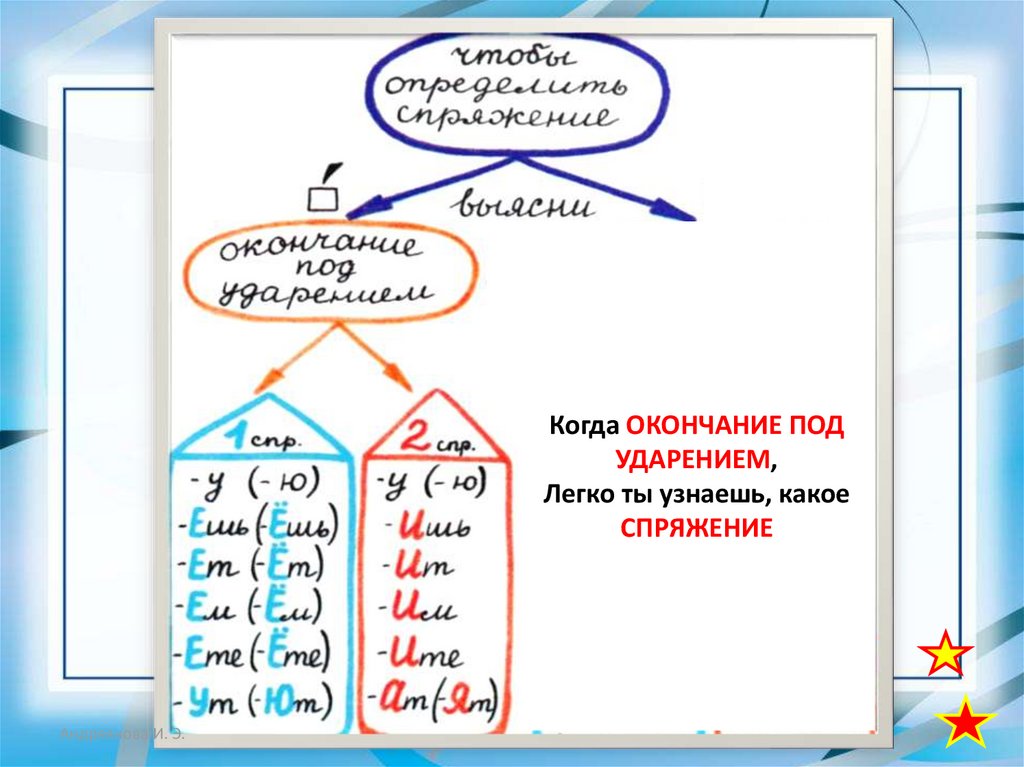 чтобы
определить
спряжение
выясни
окончание
под
ударением
1 спр.
-у (-ю)
-Ешь (-Ёшь)
-Ет (-Ёт)
-Ем (-Ём)
-Ете (-Ёте)
-Ут (-Ют)
2 спр.
-у (-ю)
-Ишь
-Ит
-Им
-Ите
-Ат (-Ят)
Когда ОКОНЧАНИЕ ПОД
УДАРЕНИЕМ,
Легко ты узнаешь, какое
СПРЯЖЕНИЕ
И. Э.